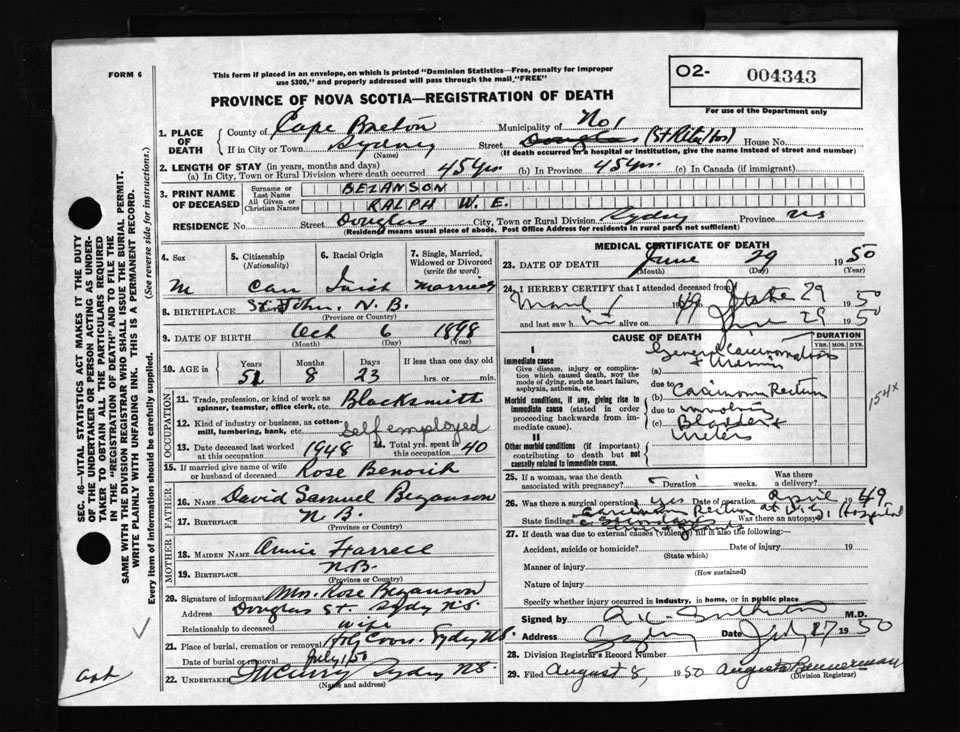 FORM 6
This form if placed in an envelope, on which is printed "Dominion Statistics—Free, penalty for improper
use $300," and properly addressed will pass through the mail, "FREE"
O2- 004343
For use of the Department only
PROVINCE OF NOVA SCOTIA—REGISTRATION OF DEATH
1. PLACE OF DEATH
County of Cape Breton Municipality of No 1
If in City or Town Sydney Street Douglas (St Rita Hos) House No.
(Name) (If death occurred in a hospital or institution, give the name instead of street and number)
2. LENGTH OF STAY (in years, months and days)
(a) In City, Town or Rural Division where death occurred 45 yrs (b) In Province 45 yrs. (c) In Canada (if immigrant)
3. PRINT NAME OF DECEASED
Surname or Last Name BEZANSON
All Given or Christian Names RALPH W. E.
RESIDENCE No. Street Douglas City, Town or Rural Division Sydney Province NS
(Residence means usual place of abode. Post Office Address for residents in rural parts not sufficient)
4. Sex
M
5. Citizenship (Nationality)
Can
6. Racial Origin
Irish
7. Single, Married, Widowed or Divorced (write the word)
Married
8. BIRTHPLACE St John, N.B.
(Province or Country)
9. DATE OF BIRTH Oct 6 1898
(Month) (Day) (Year)
10. AGE in Years Months Days If less than one day old
51 8 23 hrs. or min.
OCCUPATION
11. Trade, profession, or kind of work as spinner, teamster, office clerk, etc. Blacksmith
12. Kind of industry or business, as cotton-mill, lumbering, bank, etc. Self employed
13. Date deceased last worked at this occupation 1948 14. Total yrs. spent in this occupation 40
15. If married give name of wife or husband of deceased Rose Benoit
FATHER
16. NAME David Samuel Bezanson
17. BIRTHPLACE N.B.
(Province or Country)
MOTHER
18. MAIDEN NAME Annie Farrell
19. BIRTHPLACE N.B.
(Province or Country)
20. Signature of informant Mrs. Rose Bezanson
Address Douglas St. Sydy N.S.
Relationship to deceased Wife
21. Place of burial, cremation or removal Sydney NS.
Date of burial or removal July 1/50
22. UNDERTAKER Sydney NS.
(Name and address)
MEDICAL CERTIFICATE OF DEATH
23. DATE OF DEATH June 29 1950
(Month) (Day) (Year)
24. I HEREBY CERTIFY that I attended deceased from
29 1950
and last saw h im alive on June 29 1950
CAUSE OF DEATH DURATION
YRS. MOS. DYS.
I
Immediate cause
Give disease, injury or complication which caused death, NOT the mode of dying, such as heart failure, asphyxia, asthenia, etc.
(a) General Carcinomatosis + Uremia
Morbid conditions, if any, giving rise to immediate cause (stated in order proceeding backwards from immediate cause).
due to
(b) Carcinoma Rectum
due to involving
(c) Bladder + Ureters
154X
II
Other morbid conditions (if important) contributing to death but not causally related to immediate cause.
25. If a woman, was the death associated with pregnancy? Duration weeks. Was there a delivery?
26. Was there a surgical operation? yes Date of operation April 1949
State findings Carcinoma Rectum at City Hospital
Was there an autopsy?
27. If death was due to external causes (violence) fill in also the following:
Accident, suicide or homicide? Date of injury 19
(State which)
Manner of injury
(How sustained)
Nature of injury
Specify whether injury occurred in industry, in home, or in public place
Signed by M.D.
Address Sydney Date July 27 1950
28. Division Registrar's Record Number
29. Filed August 8, 1950 Augusta Bannerman
(Division Registrar)
SEC. 46—VITAL STATISTICS ACT MAKES IT THE DUTY
OF THE UNDERTAKER OR PERSON ACTING AS UNDER-
TAKER TO OBTAIN ALL THE PARTICULARS REQUIRED
IN THE "REGISTRATION OF DEATH" AND TO FILE THE
SAME WITH THE DIVISION REGISTRAR WHO SHALL ISSUE THE BURIAL PERMIT.
WRITE PLAINLY WITH UNFADING INK. THIS IS A PERMANENT RECORD.
Every item of information should be carefully supplied. (See reverse side for instructions.)